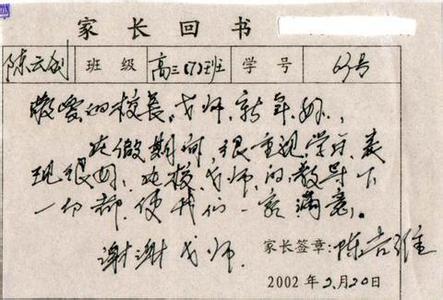 家长回书
陈云剑 班级 高三(7)班 学号 63号
敬爱的校长、老师,新年好,
在假期间,很重视学习,表
现很好,在校老师的教导下
一切都使我们一家满意。
谢谢老师
家长签章:陈吉雅
2002年2月20日